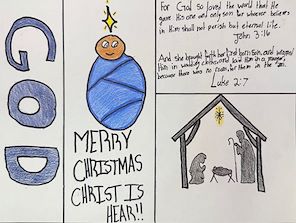 GOD
MERRY
CHRISTMAS
CHRIST IS
HEAR!!
For God so loved the world that He
gave His one and only son for whoever believes
in Him shall not perish but eternal life.
John 3:16
And she brought forth her first born son, and wrapped
Him in swaddling cloths, and laid Him in a manger,
because there was no room for them in the inn.
Luke 2:7